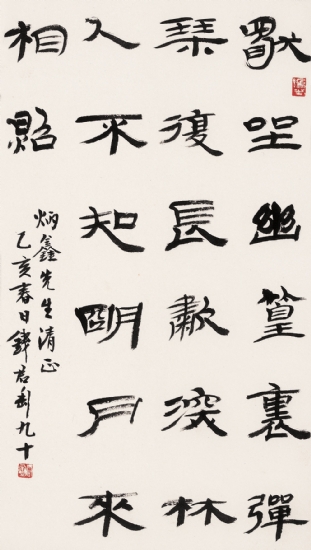 獨坐幽篁裏彈
琴復長歗深林
人不知明月來
相照
炳鑫先生清正
乙亥春日錢君匋九十